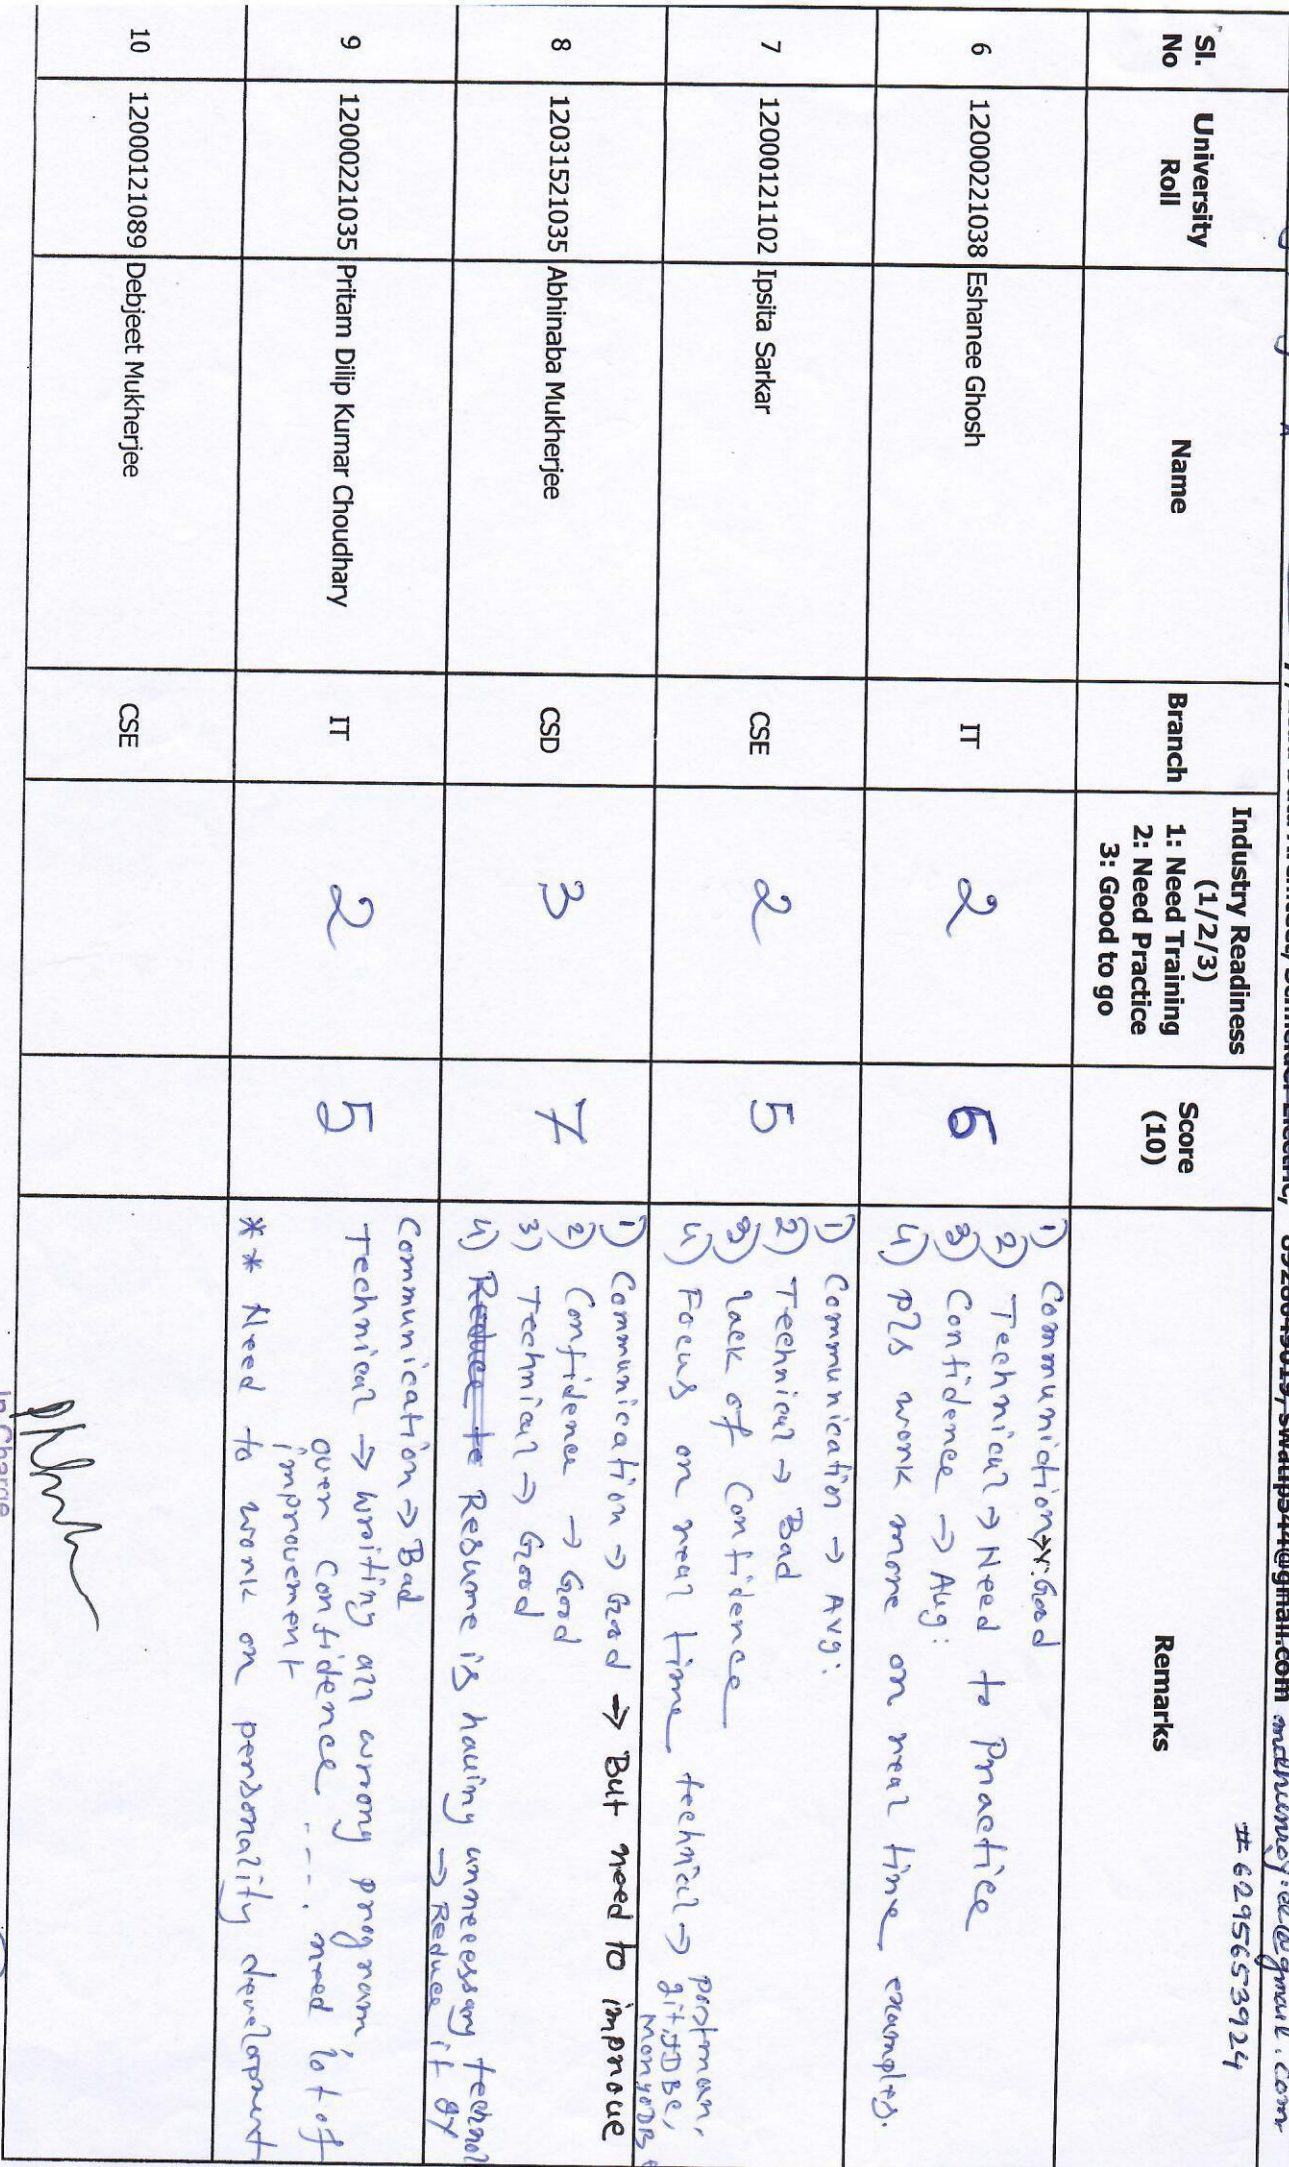 Schneider Electric, 8928645019, swatip344@gmail.com
# 6295653924
Sl. No
University Roll
Name
Branch
Industry Readiness (1/2/3)
1: Need Training
2: Need Practice
3: Good to go
Score (10)
Remarks
6 12000221038 Eshanee Ghosh IT 2 6
1) Communiction→ Good
2) Technical → Need to Practice
3) Confidence → Avg:
4) Pls work more on real time examples.
7 12000121102 Ipsita Sarkar CSE 2 5
1) Communication → Avg:
2) Technical → Bad
3) lack of Confidence
4) Focus on real time technical → postman,
git, JDBC,
MongoDB
8 12031521035 Abhinaba Mukherjee CSD 3 7
1) Communication → Good → But need to improve
2) Confidence → Good
3) Technical → Good
4) Reduce te Resume is having unnecessary technol
→ Reduce it
9 12000221035 Pritam Dilip Kumar Choudhary IT 2 5
Communication → Bad
Technical → writing all wrong program,
over confidence .... need lot of
improvement
** Need to work on personality development
10 12000121089 Debjeet Mukherjee CSE
In Charge